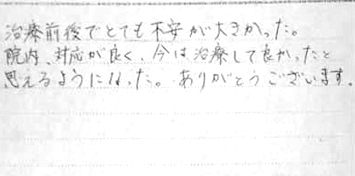 治療前後でとても不安が大きかった。
院内、対応が良く、今は治療して良かったと
思えるようになった。ありがとうございます。